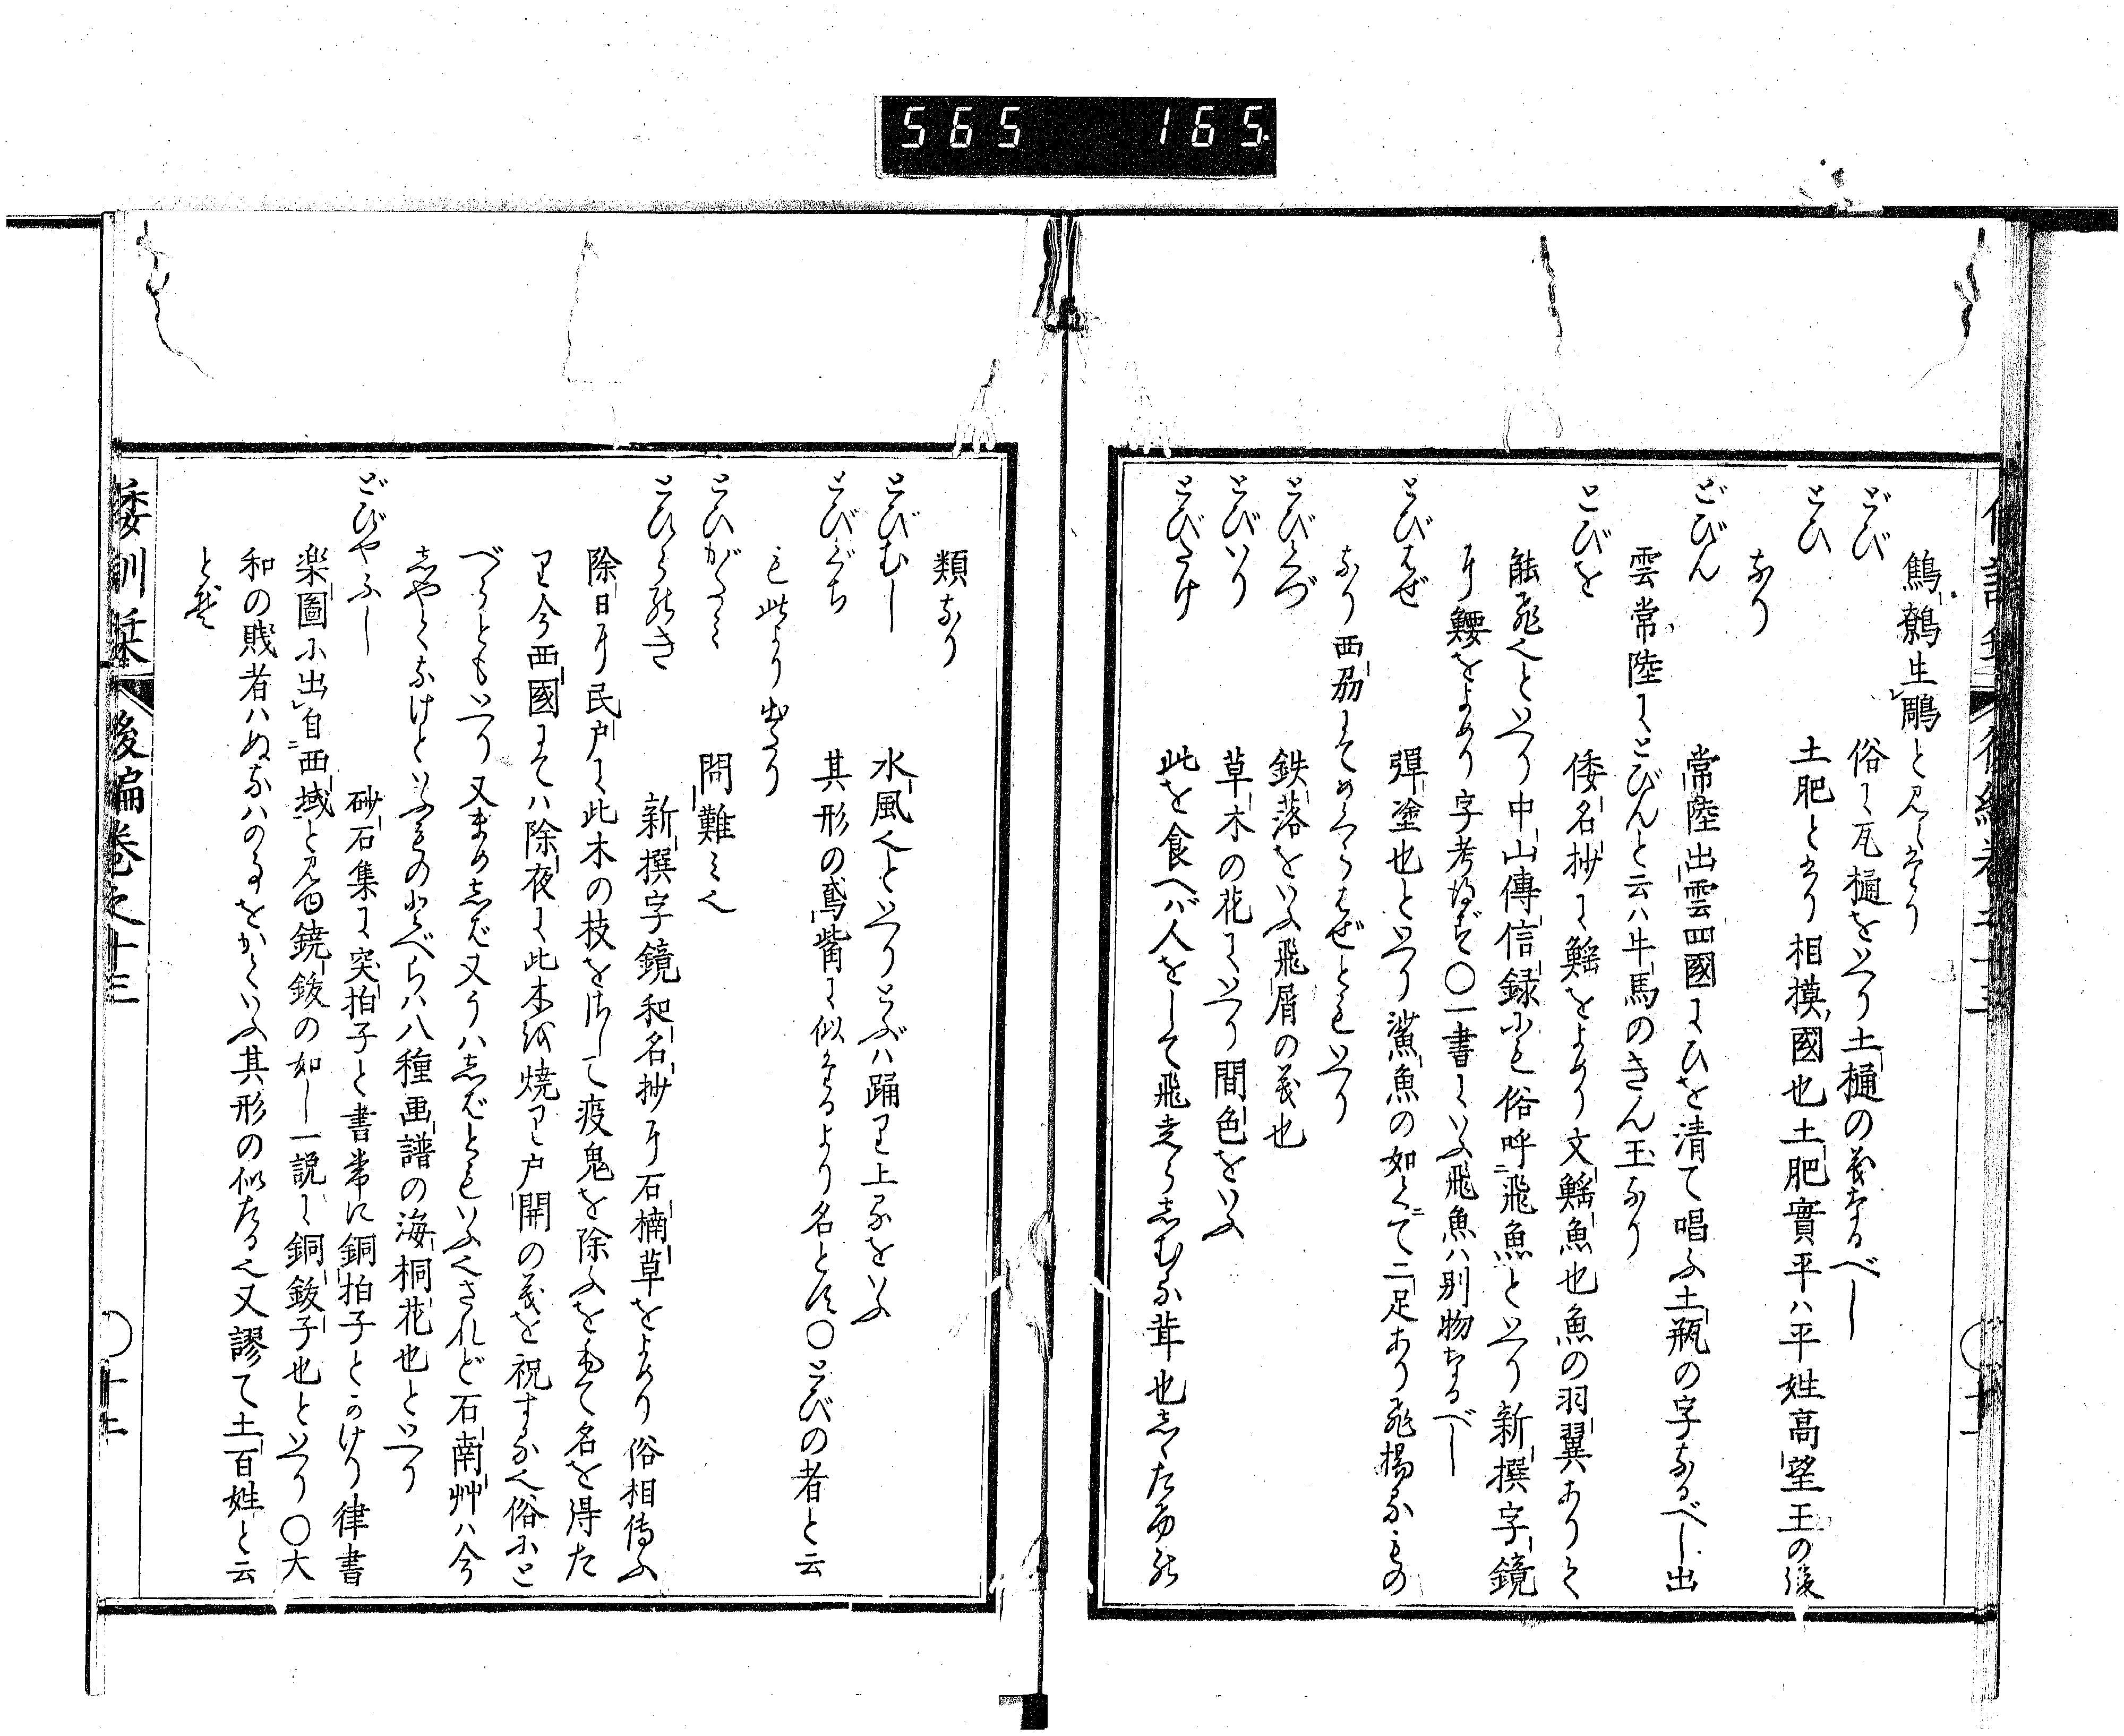 565 165
鷦鷯生鵰と見えたり
どび 俗に瓦樋をいへり土樋の義なるべし
とひ 土肥とかけり相摸國也土肥實平ハ平姓高望王の後
なり
どびん 常陸出雲四國にひを清て唱ふ土瓶の字なるべし出
雲常陸にとびんと云ハ牛馬のきん玉なり
とびを 倭名抄に鰩をよめり文鰩魚也魚の羽翼ありて
能飛也といへり中山傳信録にも俗呼飛魚といへり新撰字鏡
に鰋をよめり字考得ず〇一書にいふ飛魚ハ別物なるべし
とびはぜ 彈塗也といへり鯊魚の如くにて二足あり飛揚るもの
なり西州にてめくらはぜともいへり
とびくづ 鉄落をいふ飛屑の義也
とびいり 草木の花にいへり間色をいふ
とびたけ 此を食へバ人をして飛走らしむる茸也したための
類なり
とびむし 水風也といへりとぶハ踊り上るをいふ
とびぐち 其形の鳶觜に似たるより名とす〇とびの者と云
も此より出たり
とひがたみ 問難み也
とひらのき 新撰字鏡和名抄に石楠草をよめり俗相傳ふ
除日に民戸に此木の枝をさして疫鬼を除ふをもて名を得た
り今西國にてハ除夜に此木を焼り戸開の義を祝する也俗にと
べらともいへり又まめしば又うハしばともいふ也されど石南艸ハ今
しやくなけといふものとべらハ八種画譜の海桐花也といへり
どびやふし 砂石集に突拍子と書常に銅拍子とかけり律書
楽圖に出自西域と見ゆ鐃鈸の如し一説に銅鈸子也といへり〇大
和の賎者ハぬなハのるをかくいふ其形の似たる也又謬て土百姓と云
とぞ
倭訓栞 後編巻之十三 〇十二